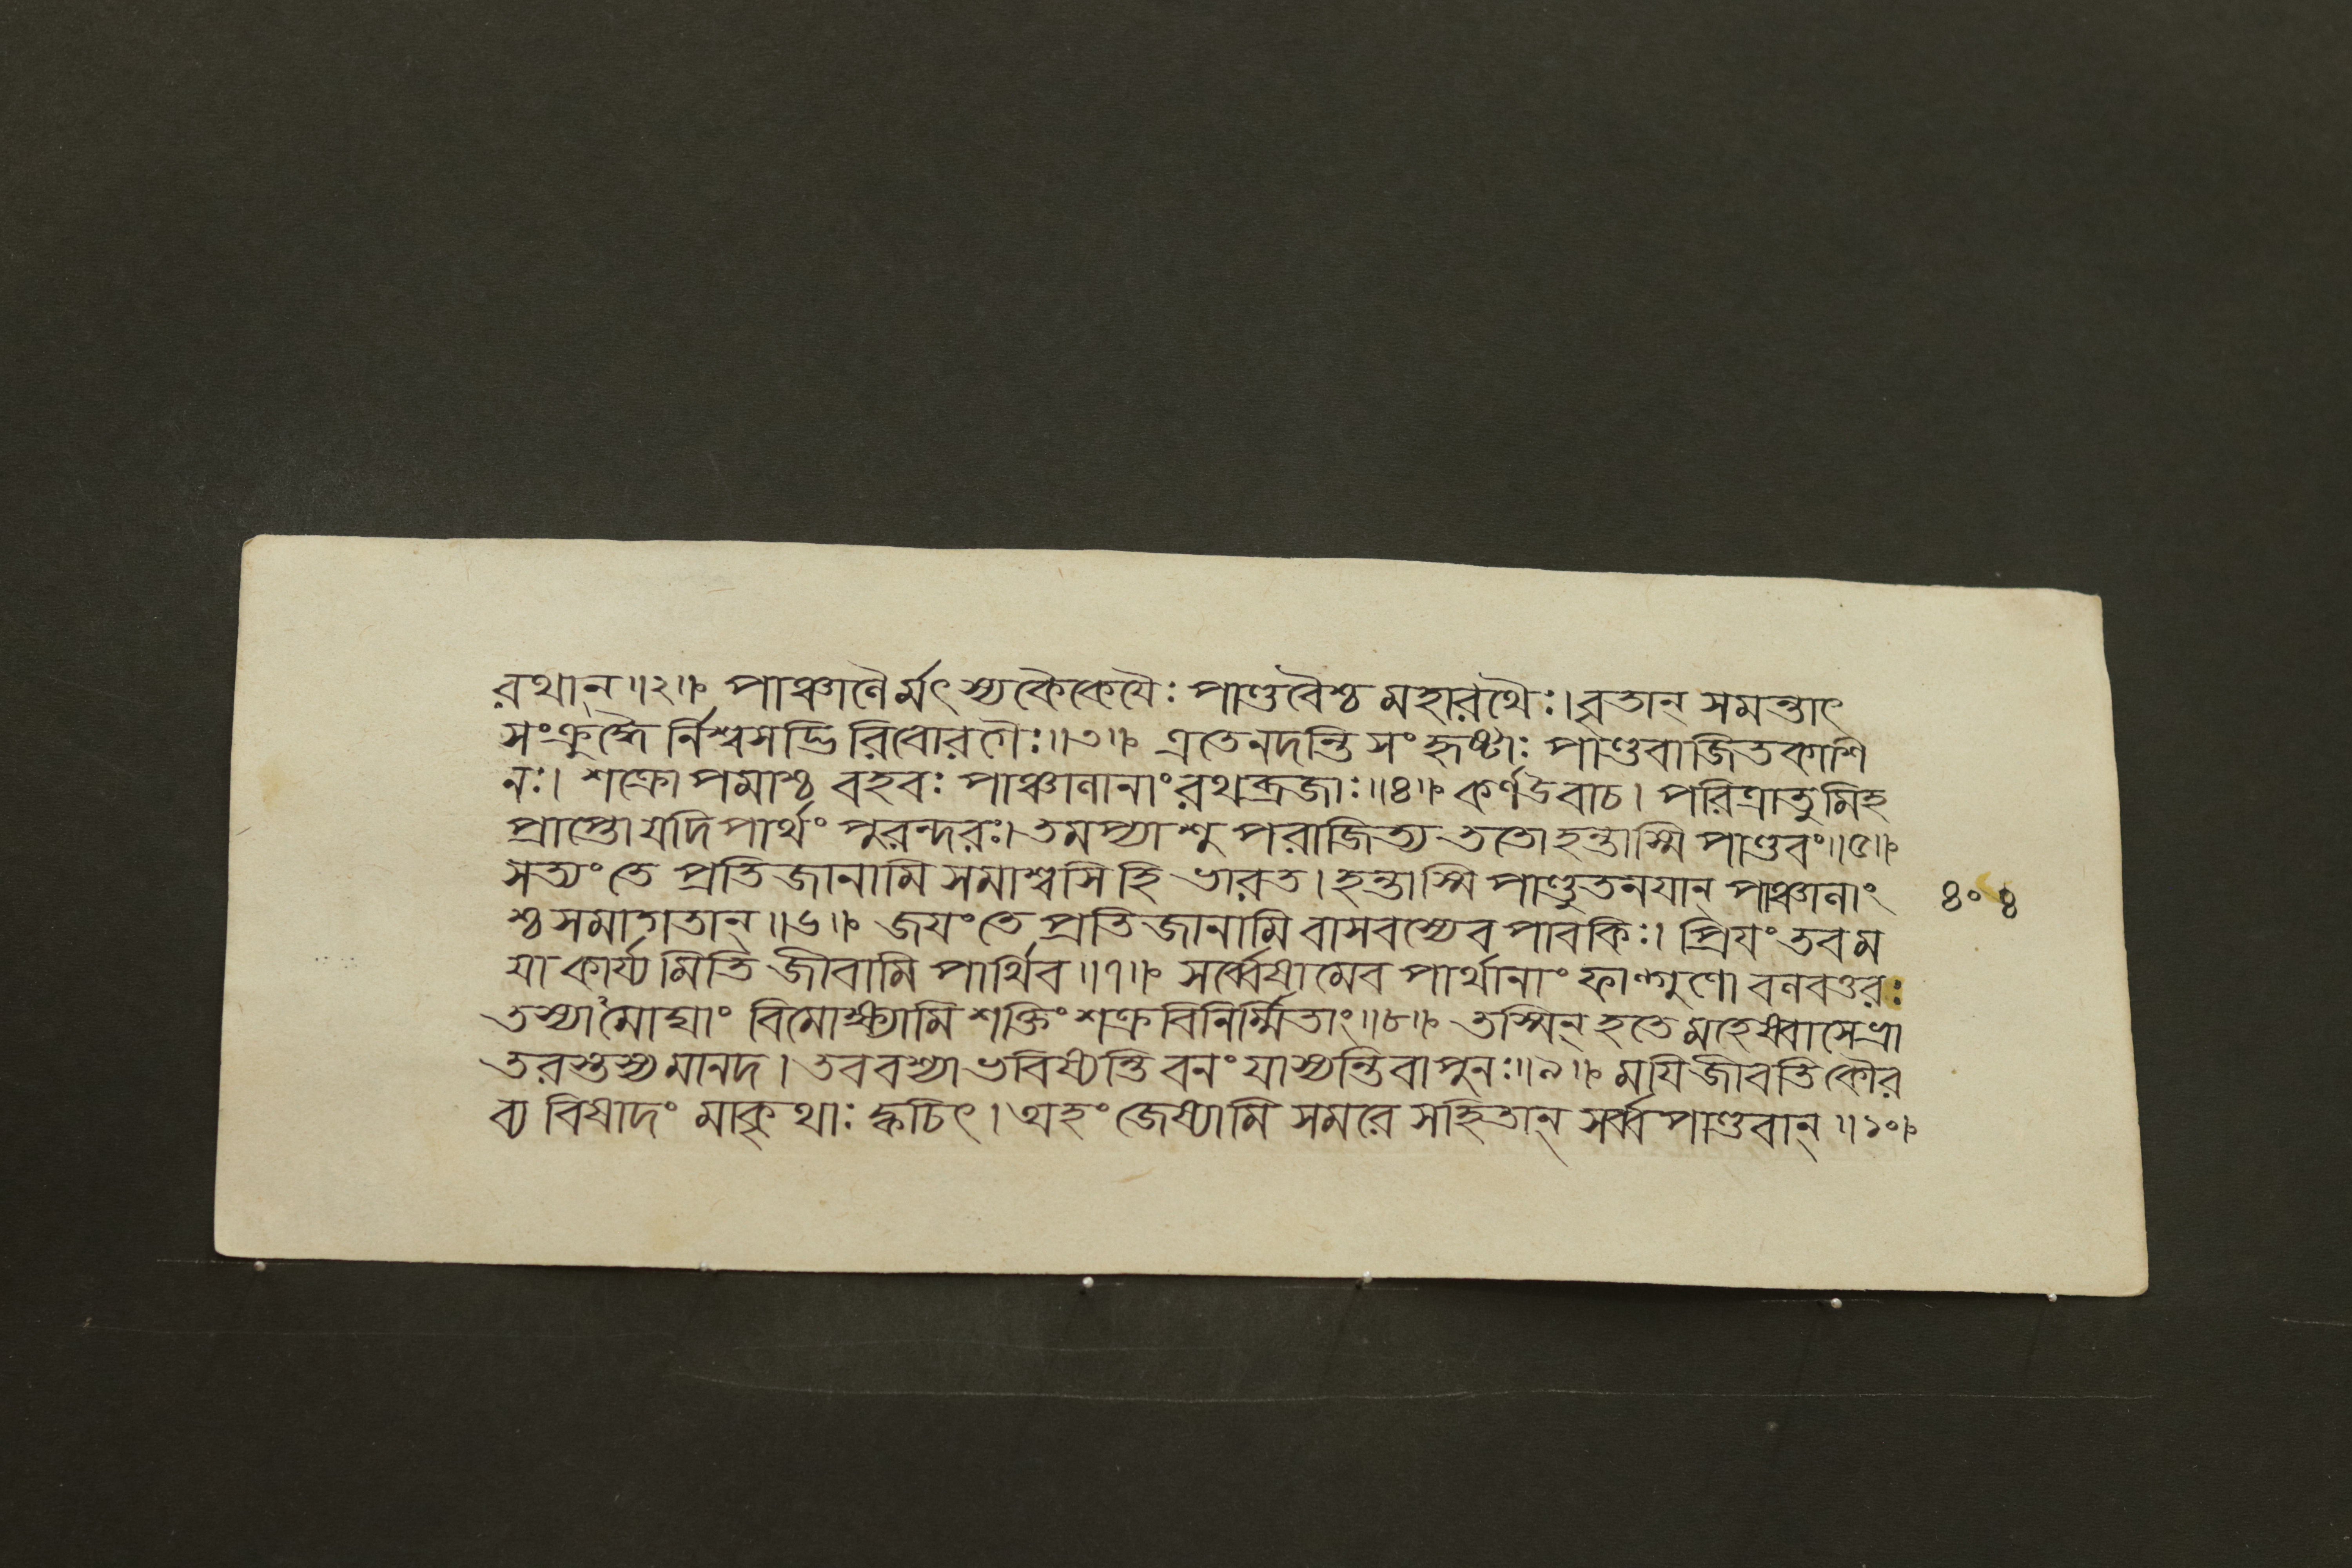 রথান্॥২॥ পাঞ্চালৈর্মৎস্যকৈকেযৈঃ পাণ্ডবৈশ্চ মহারথৈঃ। বৃতান্ সমন্তাৎ
সংক্রুদ্ধৈর্নিশ্বসদ্ভিরিবোরগৈঃ॥৩॥ এতেনদন্তি সংহৃষ্টাঃ পাণ্ডবাজিতকাশি
নঃ। শক্রোপমাশ্চ বহবঃ পাঞ্চালানাং রথব্রজাঃ॥৪॥ কর্ণউবাচ। পরিত্রাতুমিহ
প্রাপ্তো যদি পার্থং পুরন্দরঃ। তমপ্যাশু পরাজিত্য ততো হন্তাস্মি পাণ্ডবং॥৫॥
সত্যং তে প্রতিজানামি সমাশ্বসিহি ভারত। হন্তাস্মি পাণ্ডুতনযান্ পাঞ্চালাং ৪০৪
শ্চ সমাগতান্॥৬॥ জযং তে প্রতিজানামি বাসবস্যেব পাবকিঃ। প্রিযং তব ম
যা কার্য্যমিতি জীবামি পার্থিব॥৭॥ সর্ব্বেষামেব পার্থানাং ফাল্গুণো বলবত্তরঃ
তস্যামোঘাং বিমোক্ষ্যামি শক্তিং শক্রবিনির্ম্মিতাং॥৮॥ তস্মিন্ হতে মহেষ্বাসে ভ্রা
তরস্তস্য মানদ। তব বশ্যা ভবিষ্যন্তি বনং যাস্যন্তি বা পুনঃ॥৯॥ মযি জীবতি কৌর
ব্য বিষাদং মাকৃথাঃ ক্বচিৎ। অহং জেষ্যামি সমরে সহিতান্ সর্ব্বপাণ্ডবান্॥১০॥